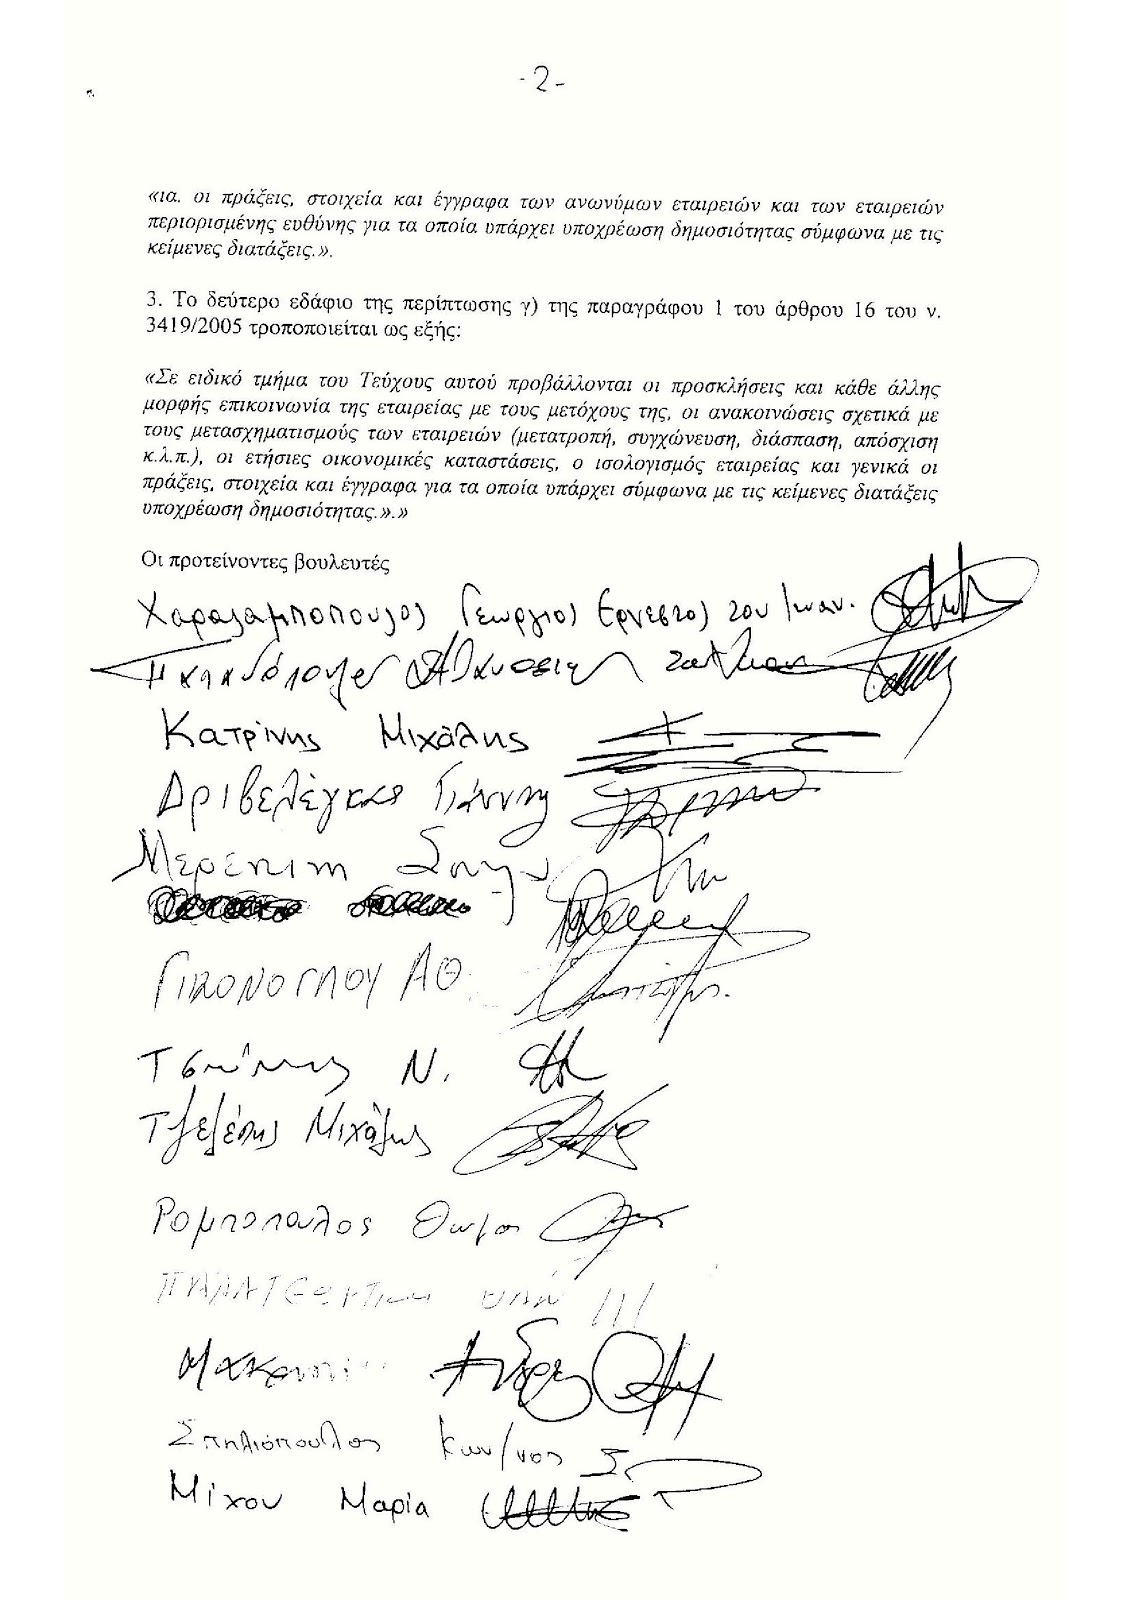 -2-
«ια. οι πράξεις, στοιχεία και έγγραφα των ανωνύμων εταιρειών και των εταιρειών
περιορισμένης ευθύνης για τα οποία υπάρχει υποχρέωση δημοσιότητας σύμφωνα με τις
κείμενες διατάξεις.».
3. Το δεύτερο εδάφιο της περίπτωσης γ) της παραγράφου 1 του άρθρου 16 του ν.
3419/2005 τροποποιείται ως εξής:
«Σε ειδικό τμήμα του Τεύχους αυτού προβάλλονται οι προσκλήσεις και κάθε άλλης
μορφής επικοινωνία της εταιρείας με τους μετόχους της, οι ανακοινώσεις σχετικά με
τους μετασχηματισμούς των εταιρειών (μετατροπή, συγχώνευση, διάσπαση, απόσχιση
κ.λ.π.), οι ετήσιες οικονομικές καταστάσεις, ο ισολογισμός εταιρείας και γενικά οι
πράξεις, στοιχεία και έγγραφα για τα οποία υπάρχει σύμφωνα με τις κείμενες διατάξεις
υποχρέωση δημοσιότητας.».»
Οι προτείνοντες βουλευτές
Χαραλαμποπουλος Γεωργιος Ερνεστος του Ιωαν.
Κατρίνης Μιχάλης
Δριβελέγκας Γιάννης
Μερεντιτη
ΓΙΚΟΝΟΓΛΟΥ ΑΘ.
Τσώνης Ν.
Τζελέπης Μιχάλης
Ρομπόπουλος Θωμα
Σπηλιόπουλος Κων/νος
Μίχου Μαρία